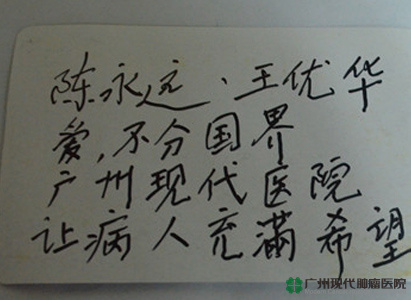 陈永远、王优华
爱,不分国界
广州现代医院
让病人充满希望
广州现代肿瘤医院